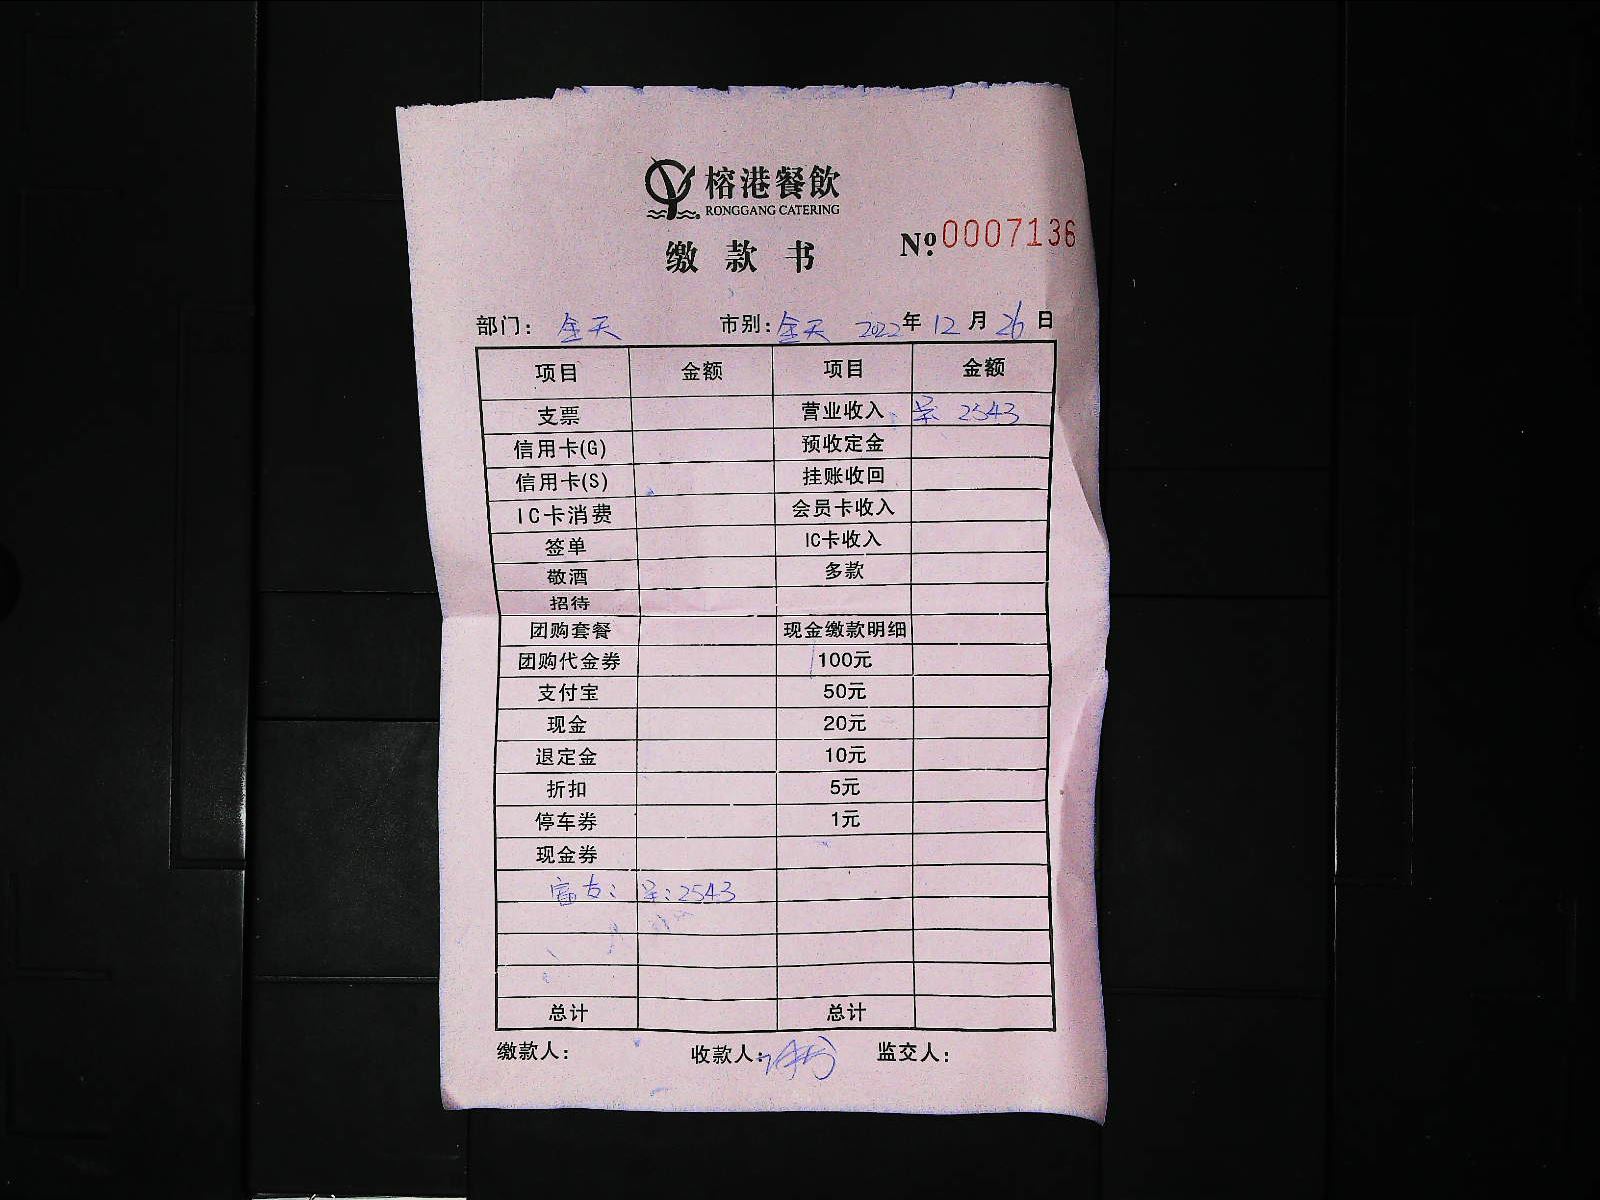 榕港餐飲
RONGGANG CATERING
缴款书
№ 0007136
部门：全天 市别：全天 2022年12月26日
项目 金额 项目 金额
支票 营业收入 2543
信用卡(G) 预收定金
信用卡(S) 挂账收回
IC卡消费 会员卡收入
签单 IC卡收入
敬酒 多款
招待
团购套餐 现金缴款明细
团购代金券 100元
支付宝 50元
现金 20元
退定金 10元
折扣 5元
停车券 1元
现金券
富友： 2543
总计 总计
缴款人： 收款人： 监交人：